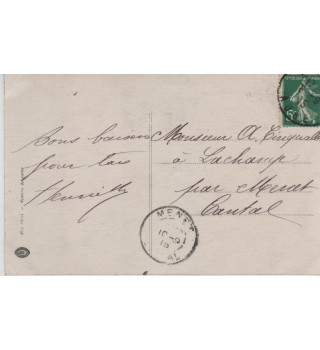 Bons baisers
pour tous
Henriette
Monsieur A.
à Lachamp
par Menet
Cantal
MENET